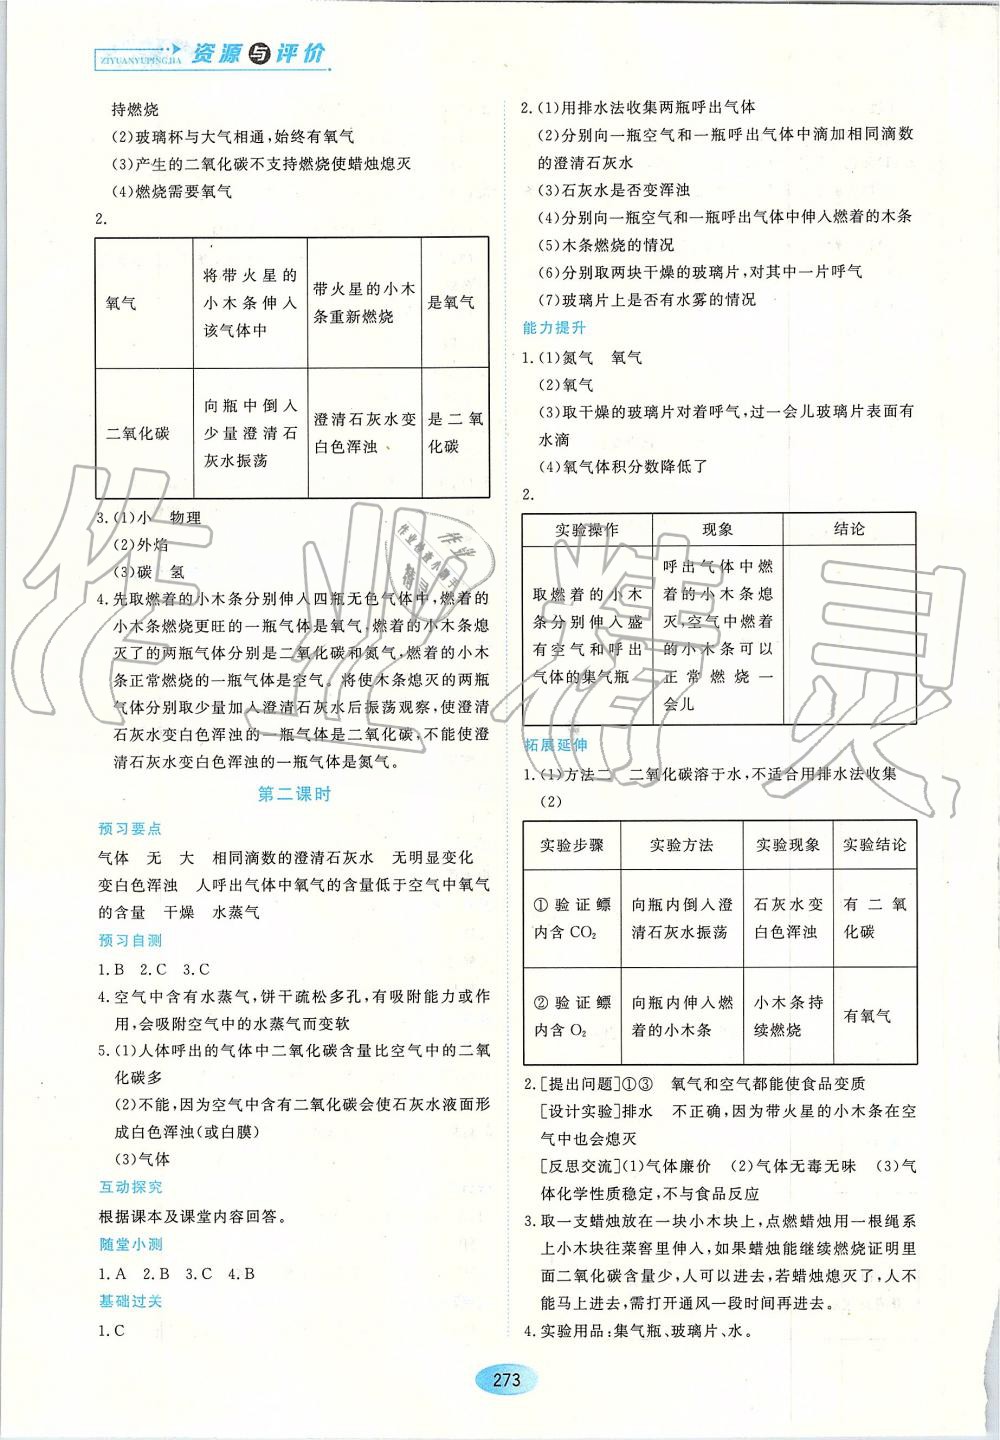 ZIYUANYUPINGJIA 资源与评价
持燃烧
(2)玻璃杯与大气相通,始终有氧气
(3)产生的二氧化碳不支持燃烧使蜡烛熄灭
(4)燃烧需要氧气
2.
氧气 将带火星的小木条伸入该气体中 带火星的小木条重新燃烧 是氧气
二氧化碳 向瓶中倒入少量澄清石灰水振荡 澄清石灰水变白色浑浊 是二氧化碳
3.(1)小 物理
(2)外焰
(3)碳 氢
4.先取燃着的小木条分别伸入四瓶无色气体中,燃着的
小木条燃烧更旺的一瓶气体是氧气,燃着的小木条熄
灭了的两瓶气体分别是二氧化碳和氮气,燃着的小木
条正常燃烧的一瓶气体是空气。将使木条熄灭的两瓶
气体分别取少量加入澄清石灰水后振荡观察,使澄清
石灰水变白色浑浊的一瓶气体是二氧化碳,不能使澄
清石灰水变白色浑浊的一瓶气体是氮气。
第二课时
预习要点
气体 无 大 相同滴数的澄清石灰水 无明显变化
变白色浑浊 人呼出气体中氧气的含量低于空气中氧气
的含量 干燥 水蒸气
预习自测
1.B 2.C 3.C
4.空气中含有水蒸气,饼干疏松多孔,有吸附能力或作
用,会吸附空气中的水蒸气而变软
5.(1)人体呼出的气体中二氧化碳含量比空气中的二氧
化碳多
(2)不能,因为空气中含有二氧化碳会使石灰水液面形
成白色浑浊(或白膜)
(3)气体
互动探究
根据课本及课堂内容回答。
随堂小测
1.A 2.B 3.C 4.B
基础过关
1.C
2.(1)用排水法收集两瓶呼出气体
(2)分别向一瓶空气和一瓶呼出气体中滴加相同滴数
的澄清石灰水
(3)石灰水是否变浑浊
(4)分别向一瓶空气和一瓶呼出气体中伸入燃着的木条
(5)木条燃烧的情况
(6)分别取两块干燥的玻璃片,对其中一片呼气
(7)玻璃片上是否有水雾的情况
能力提升
1.(1)氮气 氧气
(2)氧气
(3)取干燥的玻璃片对着呼气,过一会儿玻璃片表面有
水滴
(4)氧气体积分数降低了
2.
实验操作 现象 结论
取燃着的小木条分别伸入盛有空气和呼出气体的集气瓶 呼出气体中燃着的小木条熄灭,空气中燃着的小木条可以正常燃烧一会儿
拓展延伸
1.(1)方法二 二氧化碳溶于水,不适合用排水法收集
(2)
实验步骤 实验方法 实验现象 实验结论
①验证鳔内含CO₂ 向瓶内倒入澄清石灰水振荡 石灰水变白色浑浊 有二氧化碳
②验证鳔内含O₂ 向瓶内伸入燃着的小木条 小木条持续燃烧 有氧气
2.[提出问题]①③ 氧气和空气都能使食品变质
[设计实验]排水 不正确,因为带火星的小木条在空
气中也会熄灭
[反思交流](1)气体廉价 (2)气体无毒无味 (3)气
体化学性质稳定,不与食品反应
3.取一支蜡烛放在一块小木块上,点燃蜡烛用一根绳系
上小木块往菜窖里伸入,如果蜡烛能继续燃烧证明里
面二氧化碳含量少,人可以进去,若蜡烛熄灭了,人不
能马上进去,需打开通风一段时间再进去。
4.实验用品:集气瓶、玻璃片、水。
273
作业精灵